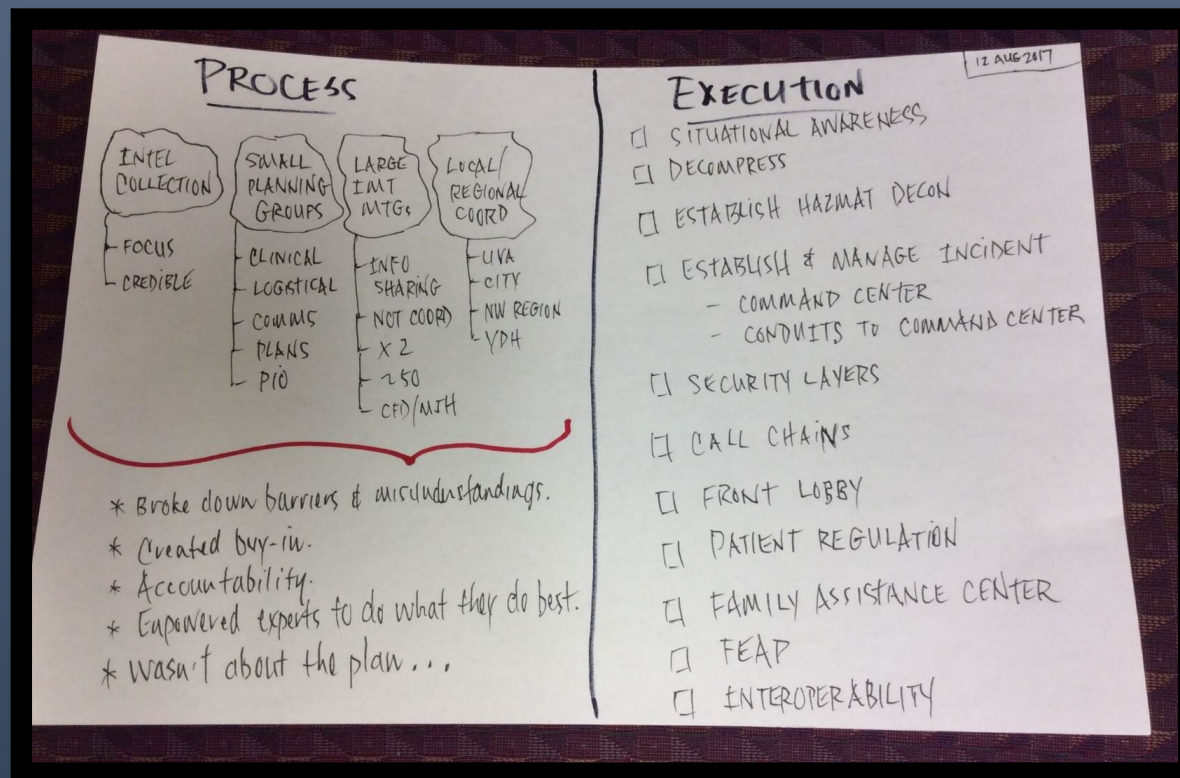 PROCESS
INTEL
COLLECTION
FOCUS
CREDIBLE
SMALL
PLANNING
GROUPS
CLINICAL
LOGISTICAL
COMMS
PLANS
PIO
LARGE
IMT
MTGS
INFO
SHARING
NOT COORD
X 2
~50
CFD/MJH
LOCAL/
REGIONAL
COORD
UVA
CITY
NW REGION
VDH
* Broke down barriers & misunderstandings.
* Created buy-in.
* Accountability.
* Empowered experts to do what they do best.
* Wasn't about the plan...
12 AUG 2017
EXECUTION
SITUATIONAL AWARENESS
DECOMPRESS
ESTABLISH HAZMAT DECON
ESTABLISH & MANAGE INCIDENT
- COMMAND CENTER
- CONDUITS TO COMMAND CENTER
SECURITY LAYERS
CALL CHAINS
FRONT LOBBY
PATIENT REGULATION
FAMILY ASSISTANCE CENTER
FEAP
INTEROPERABILITY